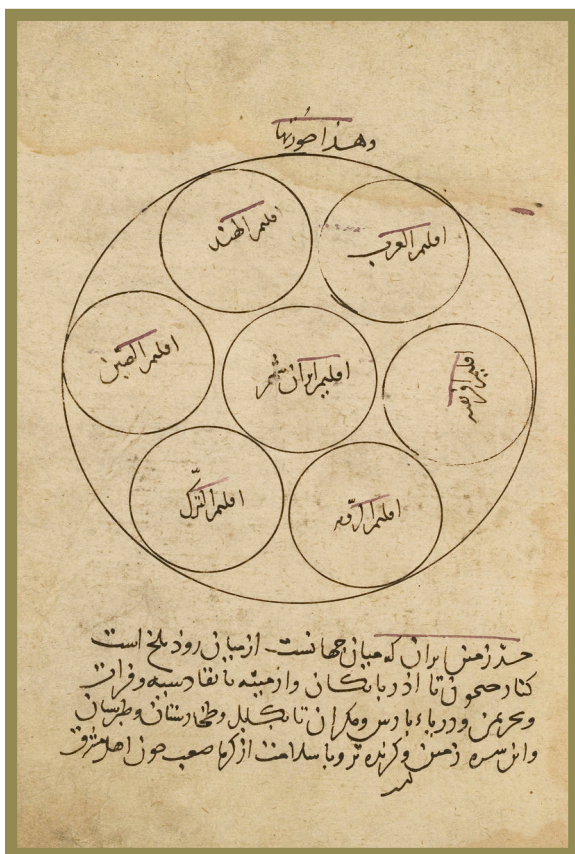 وهذا صورتها
اقلیم الهند
اقلیم العرب
اقلیم الصین
اقلیم ایران شهر
اقلیم
اقلیم الترک
اقلیم الروم
حد زمین ایران که میان جهانست از میان رود بلخ است
کنار جیحون تا اذربایکان وارمینیه تا بقادسیه وفرات
وبحر یمن ودریاء پارس ومکران تا بکابل وطخارستان وطبرستان
واین سره زمین و با سلامت از کرما صعب چون اهل مشرق